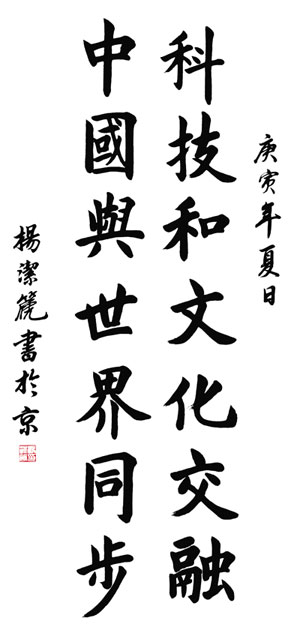 庚寅年夏日
科技和文化交融
中國與世界同步
楊潔篪書於京